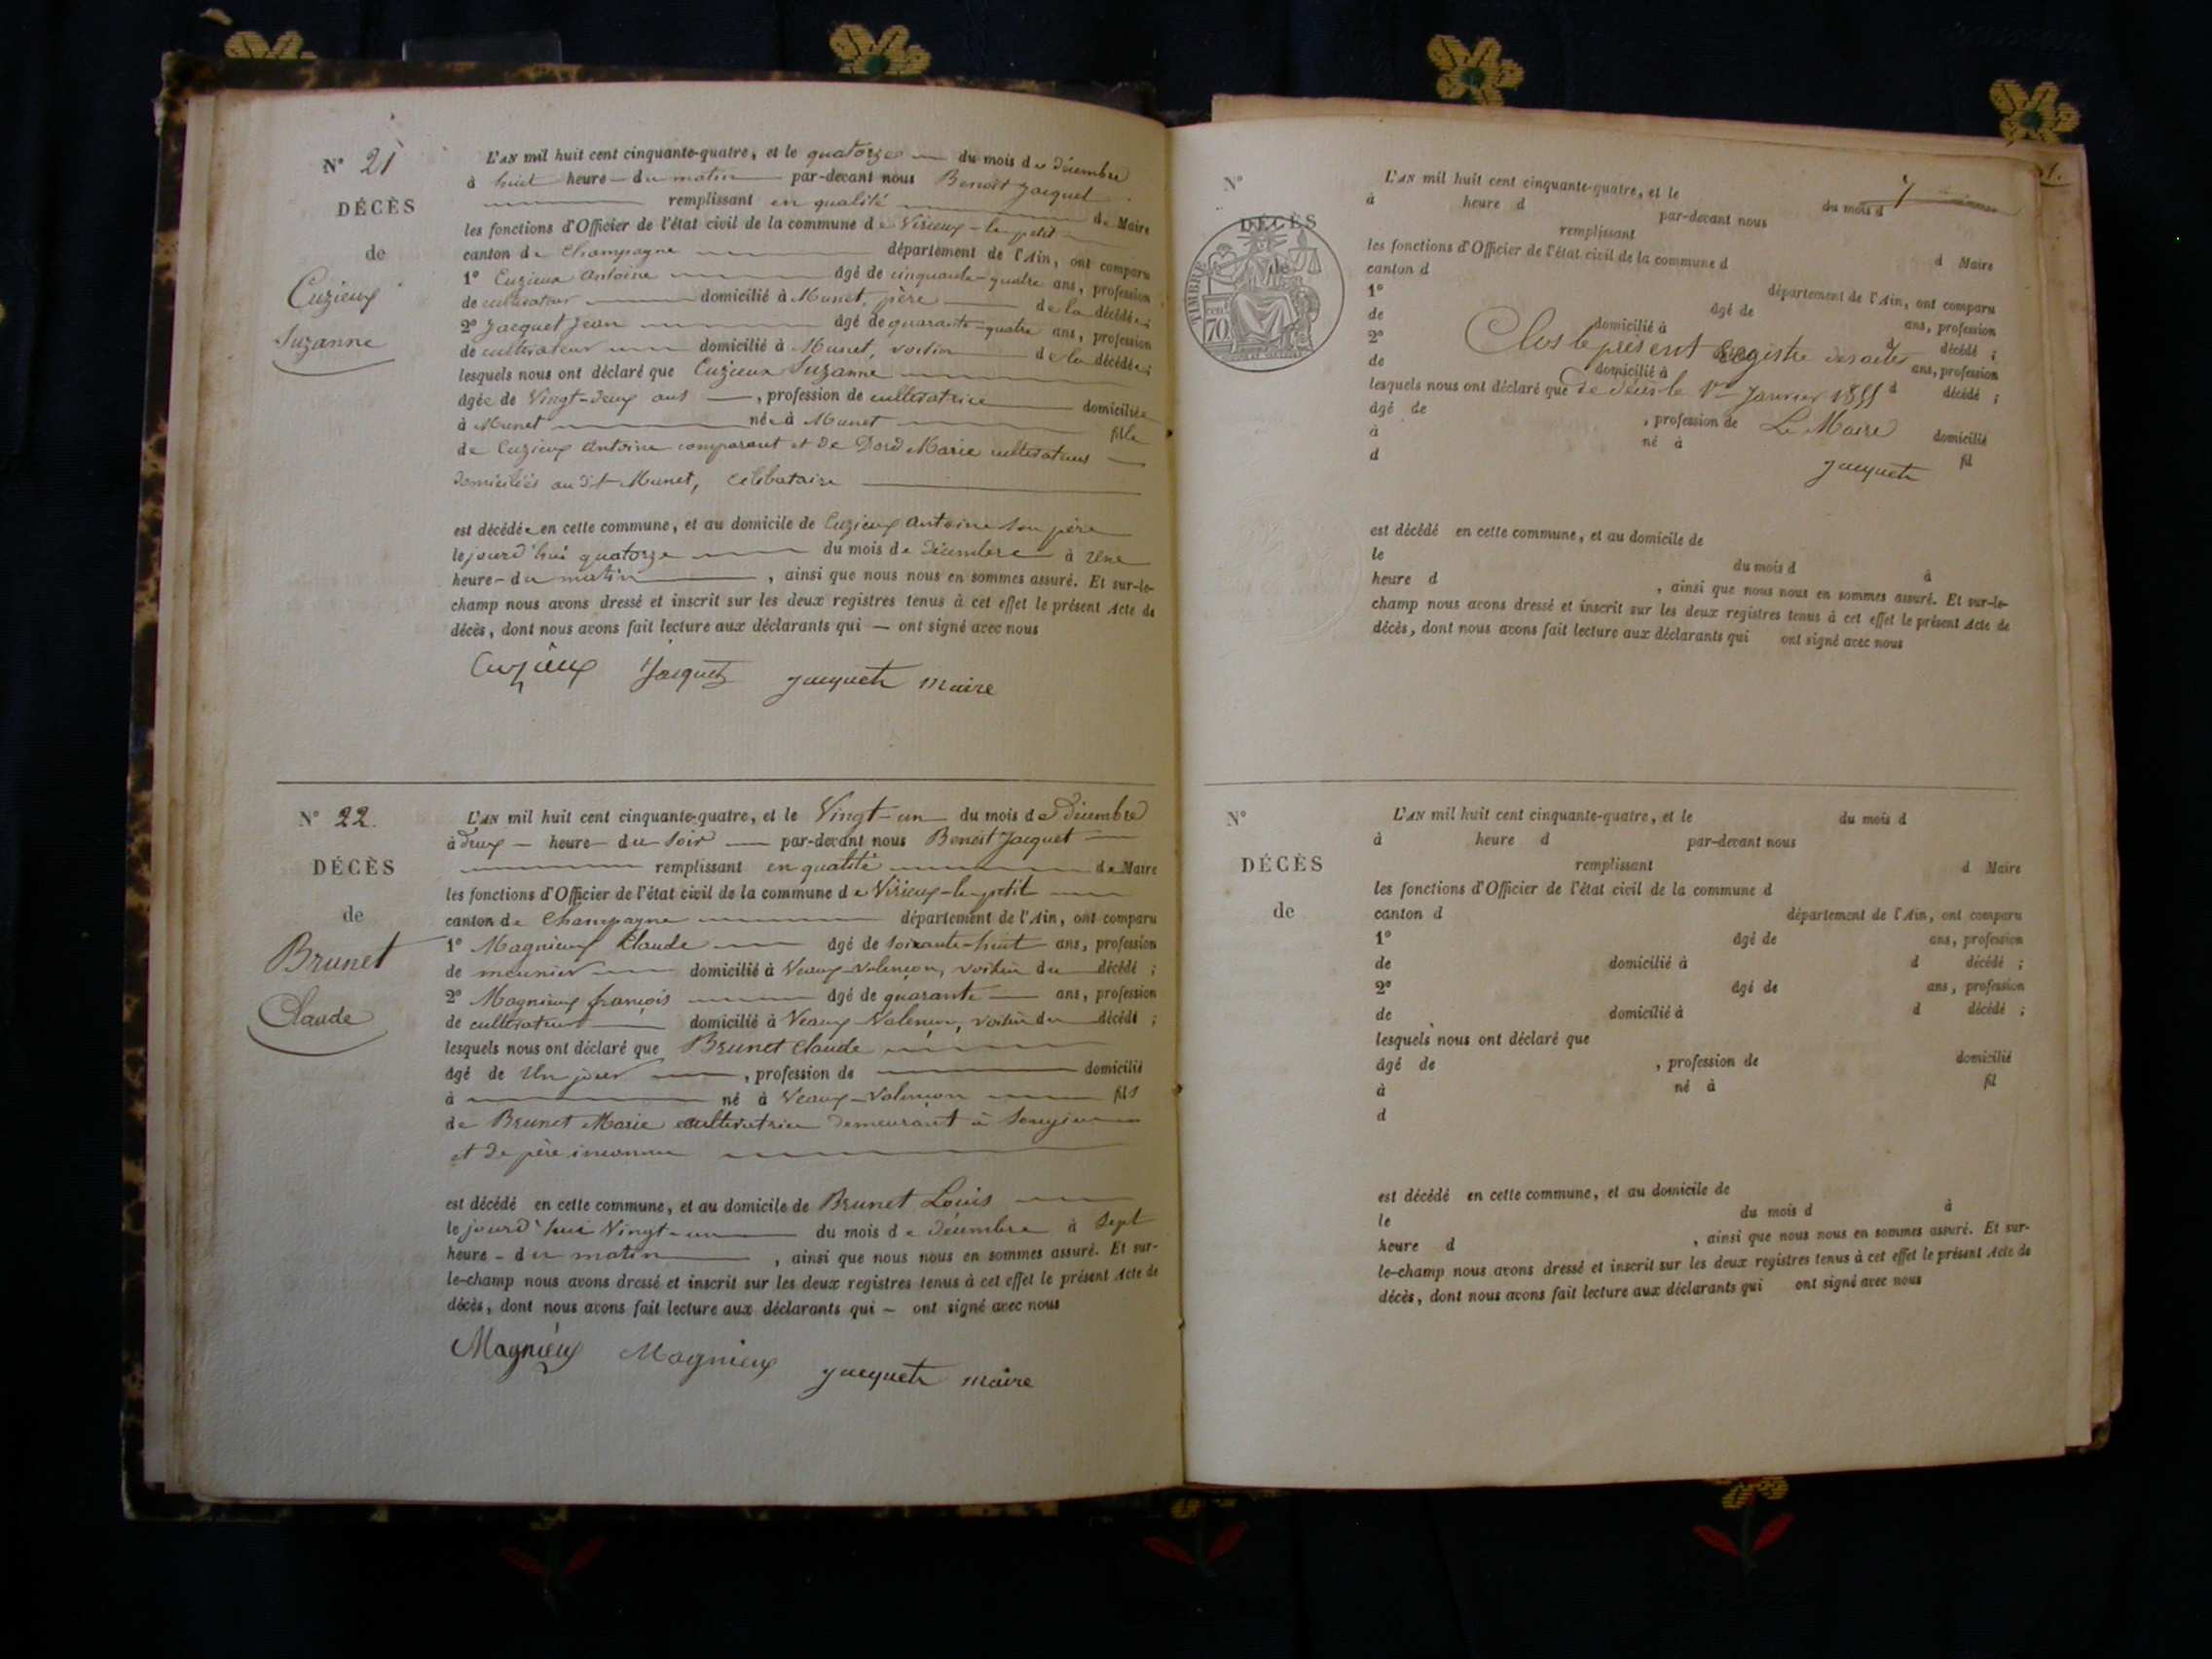 N° 21
DÉCÈS
de
Cuzieux
Suzanne
L'AN mil huit cent cinquante-quatre, et le quatorze du mois de Décembre
à huit heure du matin par-devant nous Benoît Jacquet
remplissant en qualité de Maire
les fonctions d'Officier de l'état civil de la commune de Virieux-le-petit
canton de Champagne département de l'Ain, ont comparu
1° Cuzieux Antoine âgé de cinquante-quatre ans, profession
de cultivateur domicilié à Munet, père de la décédée;
2° Jacquet Jean âgé de quarante-quatre ans, profession
de cultivateur domicilié à Munet, voisin de la décédée;
lesquels nous ont déclaré que Cuzieux Suzanne
âgée de Vingt-deux ans, profession de cultivatrice domiciliée
à Munet née à Munet fille
de Cuzieux Antoine comparant et de Dord Marie cultivateurs
domiciliés au dit Munet, célibataire
est décédée en cette commune, et au domicile de Cuzieux Antoine son père
le jourd'hui quatorze du mois de Décembre à Une
heure du matin, ainsi que nous nous en sommes assuré. Et sur-le-
champ nous avons dressé et inscrit sur les deux registres tenus à cet effet le présent Acte de
décès, dont nous avons fait lecture aux déclarants qui — ont signé avec nous
Cuzieux Jacquet Jacquet maire
N° 22.
DÉCÈS
de
Brunet
Claude
L'AN mil huit cent cinquante-quatre, et le Vingt-un du mois de Décembre
à deux heure du soir par-devant nous Benoît Jacquet
remplissant en qualité de Maire
les fonctions d'Officier de l'état civil de la commune de Virieux-le-petit
canton de Champagne département de l'Ain, ont comparu
1° Magnieux Claude âgé de soixante-huit ans, profession
de meunier domicilié à Veaux-Valençon, voisin du décédé;
2° Magnieux françois âgé de quarante ans, profession
de cultivateur domicilié à Veaux-Valençon, voisin du décédé;
lesquels nous ont déclaré que Brunet Claude
âgé de Un jour, profession de domicilié
à né à Veaux-Valençon fils
de Brunet Marie cultivatrice demeurant à Songieu
et de père inconnu
est décédé en cette commune, et au domicile de Brunet Louis
le jourd'hui Vingt-un du mois de Décembre à Sept
heure du matin, ainsi que nous nous en sommes assuré. Et sur-
le-champ nous avons dressé et inscrit sur les deux registres tenus à cet effet le présent Acte de
décès, dont nous avons fait lecture aux déclarants qui — ont signé avec nous
Magnieux Magnieux Jacquet maire
N°
DÉCÈS
de
TIMBRE
70
L'AN mil huit cent cinquante-quatre, et le du mois d
à heure d par-devant nous
remplissant d Maire
les fonctions d'Officier de l'état civil de la commune d
canton d département de l'Ain, ont comparu
1° âgé de ans, profession
de domicilié à d décédé;
Clos le présent Registre des actes
2° ans, profession
de domicilié à d décédé;
lesquels nous ont déclaré que
de décès le 1er Janvier 1855
âgé de, profession de domicilié
Le Maire
à né à fil
d
Jacquet
est décédé en cette commune, et au domicile de
le du mois d à
heure d, ainsi que nous nous en sommes assuré. Et sur-le-
champ nous avons dressé et inscrit sur les deux registres tenus à cet effet le présent Acte de
décès, dont nous avons fait lecture aux déclarants qui ont signé avec nous
N°
DÉCÈS
de
L'AN mil huit cent cinquante-quatre, et le du mois d
à heure d par-devant nous
remplissant d Maire
les fonctions d'Officier de l'état civil de la commune d
canton d département de l'Ain, ont comparu
1° âgé de ans, profession
de domicilié à d décédé;
2° âgé de ans, profession
de domicilié à d décédé;
lesquels nous ont déclaré que
âgé de, profession de domicilié
à né à fil
d
est décédé en cette commune, et au domicile de
le du mois d à
heure d, ainsi que nous nous en sommes assuré. Et sur-
le-champ nous avons dressé et inscrit sur les deux registres tenus à cet effet le présent Acte de
décès, dont nous avons fait lecture aux déclarants qui ont signé avec nous